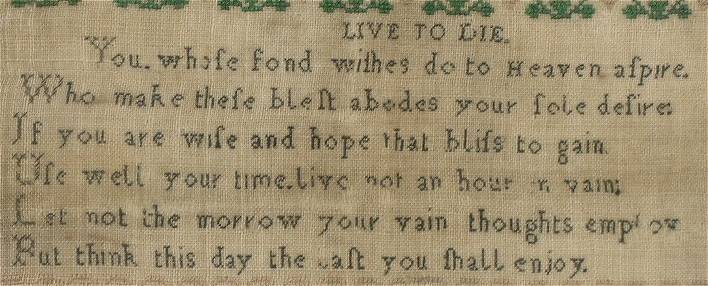 LIVE TO DIE.
You. whoſe fond wiſhes do to Heaven aſpire.
Who make theſe bleſt abodes your ſole deſire:
If you are wiſe and hope that bliſs to gain
Uſe well your time. live not an hour in vain;
Let not the morrow your vain thoughts employ
But think this day the laſt you ſhall enjoy.